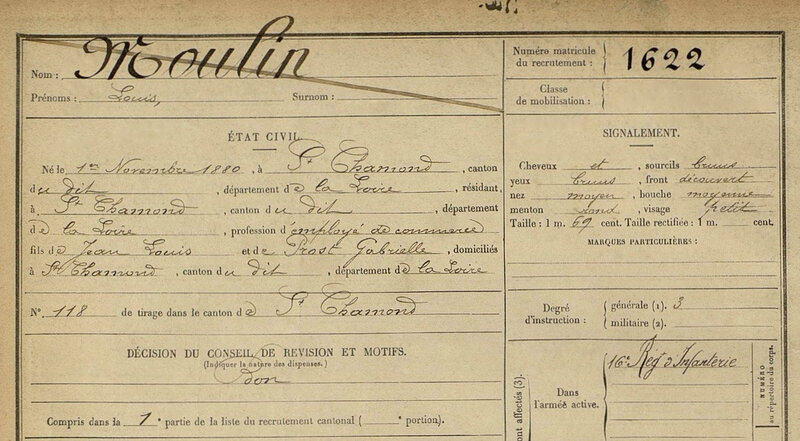 Nom : Moulin
Prénoms : Louis, Surnom :
ÉTAT CIVIL.
Né le 1er Novembre 1880, à St Chamond, canton
du dit, département de la Loire, résidant
à St Chamond, canton du dit, département
de la Loire, profession d'employé de commerce
fils de Jean Louis et de Prost Gabrielle, domiciliés
à St Chamond, canton du dit, département de la Loire
N° 118 de tirage dans le canton de St Chamond
DÉCISION DU CONSEIL DE REVISION ET MOTIFS.
(Indiquer la nature des dispenses.)
Bon
Compris dans la 1e partie de la liste du recrutement cantonal ( e portion).
Numéro matricule
du recrutement : 1622
Classe
de mobilisation :
SIGNALEMENT.
Cheveux et , sourcils bruns
yeux bruns , front découvert
nez moyen , bouche moyenne
menton rond , visage petit
Taille : 1 m. 69 cent. Taille rectifiée : 1 m. cent.
MARQUES PARTICULIÈRES :
Degré
d'instruction :
générale (1). 3
militaire (2).
Dans
l'armée active.
16e Régt d'Infanterie
NUMÉRO
au répertoire du corps.
ont affectés (3).